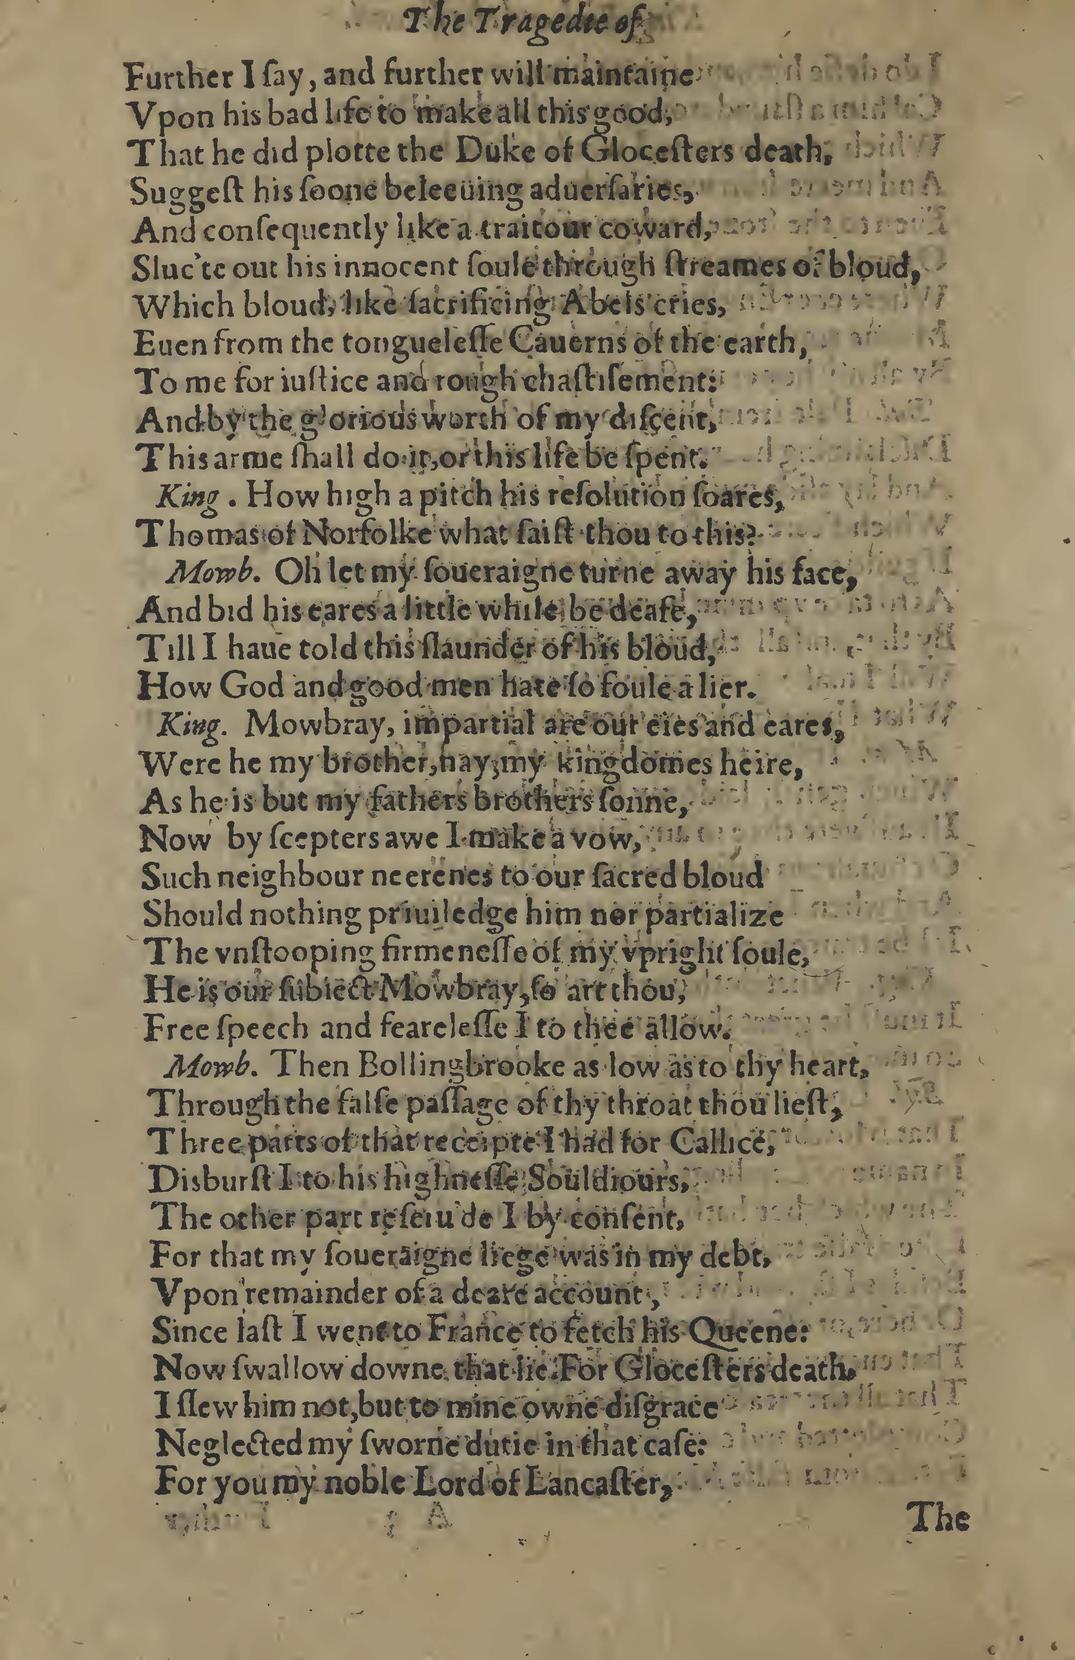 The Tragedie of
Further I ſay, and further will maintaine
Vpon his bad life to make all this good,
That he did plotte the Duke of Gloceſters death,
Suggeſt his ſoone beleeuing aduerſaries,
And conſequently like a traitour coward,
Sluc'te out his innocent ſoule through ſtreames of bloud,
Which bloud, like ſacrificing Abels cries,
Euen from the tongueleſſe Cauerns of the earth,
To me for iuſtice and rough chaſtiſement:
And by the glorious worth of my diſcent,
This arme ſhall do it, or this life be ſpent.
King. How high a pitch his reſolution ſoares,
Thomas of Norfolke what ſaiſt thou to this?
Mowb. Oh let my ſoueraigne turne away his face,
And bid his eares a little while be deafe,
Till I haue told this ſlaunder of his bloud,
How God and good men hate ſo foule a lier.
King. Mowbray, impartial are our eies and eares,
Were he my brother, nay, my kingdomes heire,
As he is but my fathers brothers ſonne,
Now by ſcepters awe I make a vow,
Such neighbour neerenes to our ſacred bloud
Should nothing priuiledge him nor partialize
The vnſtooping firmeneſſe of my vpright ſoule,
He is our ſubiect Mowbray, ſo art thou,
Free ſpeech and feareleſſe I to thee allow.
Mowb. Then Bollingbrooke as low as to thy heart,
Through the falſe paſſage of thy throat thou lieſt,
Three parts of that receipte I had for Callice,
Disburſt I to his highneſſe Souldiours,
The other part reſeru'de I by conſent,
For that my ſoueraigne liege was in my debt,
Vpon remainder of a deare account,
Since laſt I went to France to fetch his Queene:
Now ſwallow downe that lie. For Gloceſters death,
I ſlew him not, but to mine owne diſgrace
Neglected my ſworne dutie in that caſe:
For you my noble Lord of Lancaſter,
The